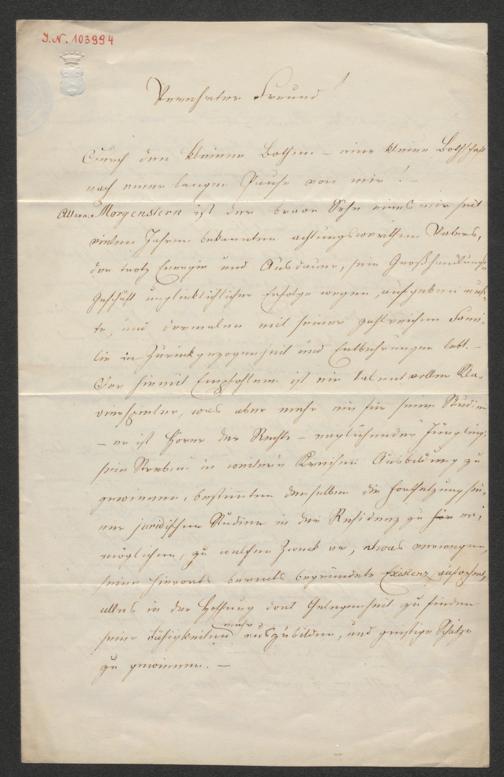 I.N. 103994
Verehrter Freund!
Durch den kleinen Bothen – eine kleine Bothschaft
nach einer langen Pause von mir! –
Morgenstern ist der brave Sohn eines mir seit
vielen Jahren bekannten achtungswerthen Vaters,
der trotz Energie und Ausdauer, sein Großhandlungs-
Geschäft unglücklicher Erfolge wegen, aufgeben muß-
te, und dermalen mit seiner zahlreichen Fami-
lie in Zurückgezogenheit und Entbehrungen lebt. –
Der hiemit Empfohlene ist ein talentvoller Kla-
vierspieler, was aber mehr ein für seine Studien
– er ist Hörer der Rechte – erglühender Jüngling,
sein Streben in weitern Kreisen Ausbildung zu
gewinnen, bestimmten denselben die Fortsetzung sei-
ner juridischen Studien in der Residenz zu er-
möglichen, zu welchem Zweck er, etwas verwegen,
seine hierorts bereits begründete Existenz aufopfert,
alles in der Hoffnung dort Gelegenheit zu finden
seine Fähigkeiten mehr auszubilden, und geistige Schätze
zu gewinnen. –